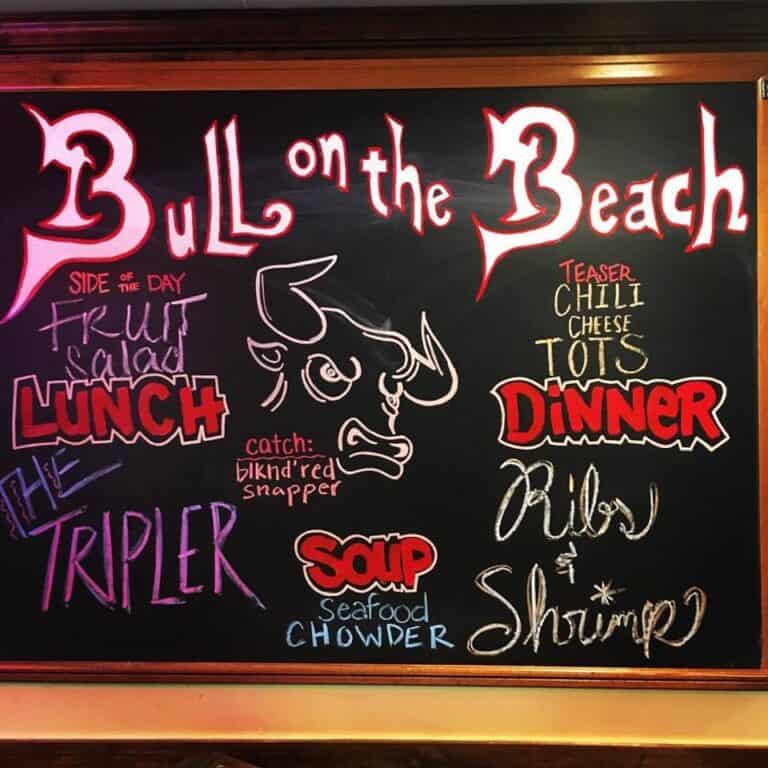 Bull on the Beach
SIDE OF THE DAY
FRUIT
Salad
LUNCH
THE
TRIPLER
catch:
blknd'red
snapper
SOUP
Seafood
CHOWDER
TEASER
CHILI
CHEESE
TOTS
DINNER
Ribs
&
Shrimp